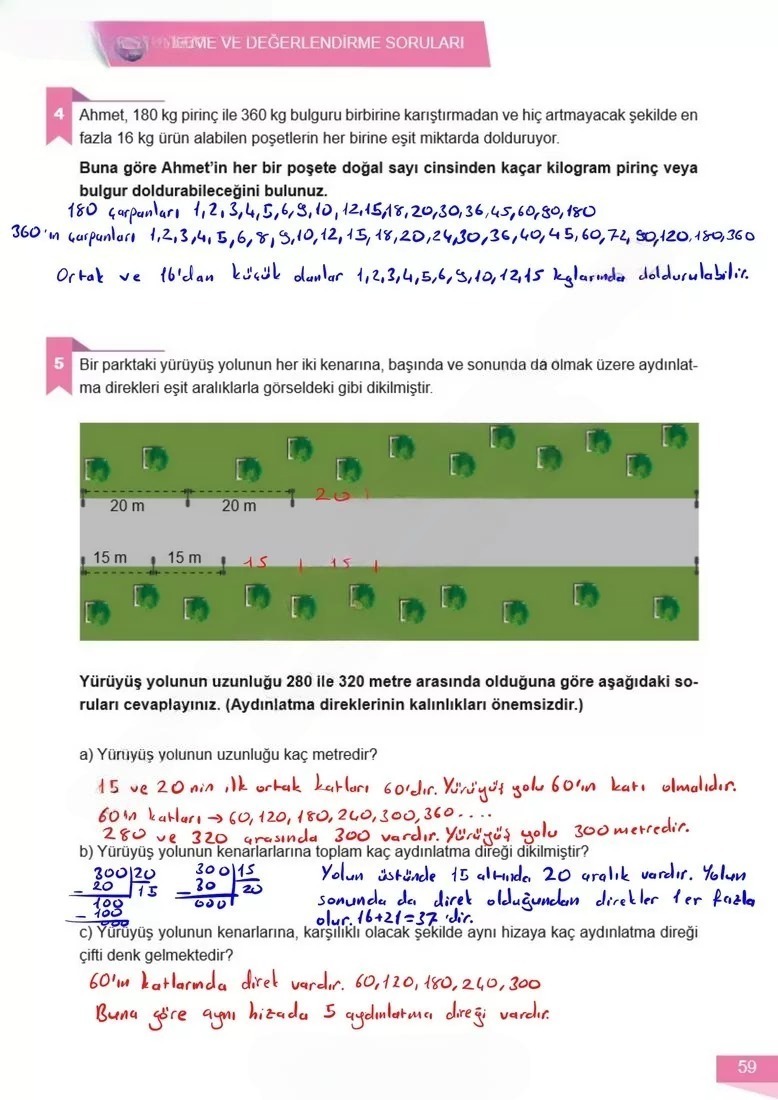 EME VE DEĞERLENDİRME SORULARI
4 Ahmet, 180 kg pirinç ile 360 kg bulguru birbirine karıştırmadan ve hiç artmayacak şekilde en
fazla 16 kg ürün alabilen poşetlerin her birine eşit miktarda dolduruyor.
Buna göre Ahmet'in her bir poşete doğal sayı cinsinden kaçar kilogram pirinç veya
bulgur doldurabileceğini bulunuz.
180 çarpanları 1,2,3,4,5,6,9,10,12,15,18,20,30,36,45,60,90,180
360'ın çarpanları 1,2,3,4,5,6,8,9,10,12,15,18,20,24,30,36,40,45,60,72,90,120,180,360
Ortak ve 16'dan küçük olanlar 1,2,3,4,5,6,9,10,12,15 kglarında doldurulabilir.
5 Bir parktaki yürüyüş yolunun her iki kenarına, başında ve sonunda da olmak üzere aydınlat-
ma direkleri eşit aralıklarla görseldeki gibi dikilmiştir.
20 m 20 m 20
15 m 15 m 15 15
Yürüyüş yolunun uzunluğu 280 ile 320 metre arasında olduğuna göre aşağıdaki so-
ruları cevaplayınız. (Aydınlatma direklerinin kalınlıkları önemsizdir.)
a) Yürüyüş yolunun uzunluğu kaç metredir?
15 ve 20 nin ilk ortak katları 60'dır. Yürüyüş yolu 60'ın katı olmalıdır.
60'ın katları → 60, 120, 180, 240, 300, 360 ....
280 ve 320 arasında 300 vardır. Yürüyüş yolu 300 metredir.
b) Yürüyüş yolunun kenarlarlarına toplam kaç aydınlatma direği dikilmiştir?
300 20 300 15 Yolun üstünde 15 altında 20 aralık vardır. Yolun
- 20 15 - 30 20 sonunda da direk olduğundan direkler 1er fazla
100 000 olur. 16+21=37 'dir.
- 100
000
c) Yürüyüş yolunun kenarlarına, karşılıklı olacak şekilde aynı hizaya kaç aydınlatma direği
çifti denk gelmektedir?
60'ın katlarında direk vardır. 60,120,180,240,300
Buna göre aynı hizada 5 aydınlatma direği vardır.
59